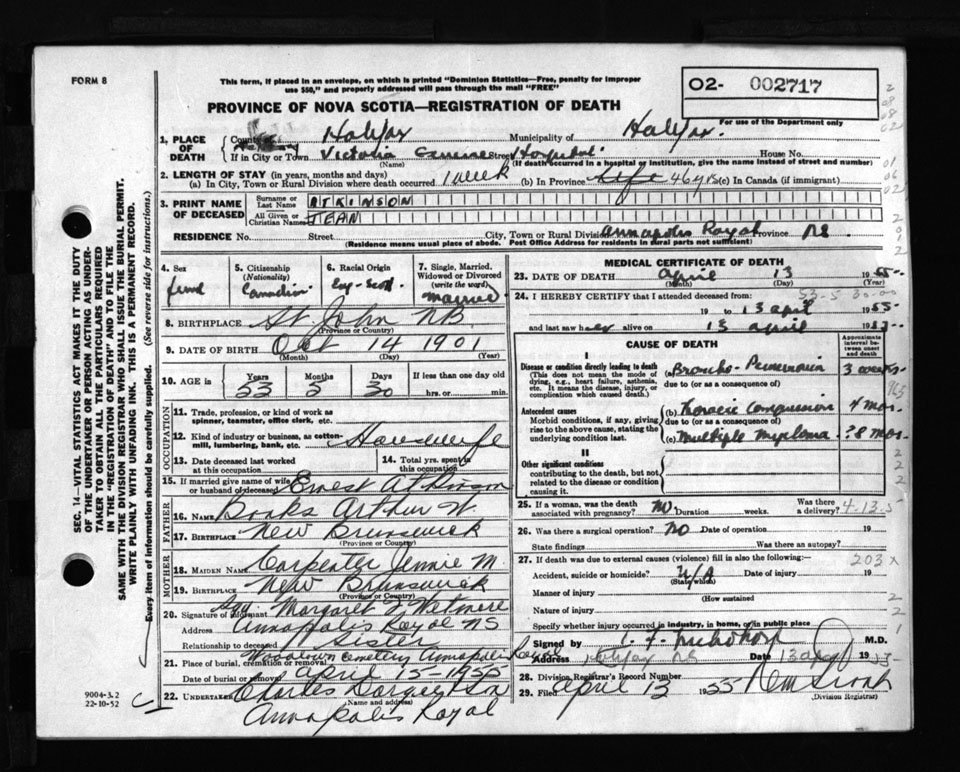 FORM 8
This form, if placed in an envelope, on which is printed "Dominion Statistics—Free, penalty for improper
use $50," and properly addressed will pass through the mail "FREE"
PROVINCE OF NOVA SCOTIA—REGISTRATION OF DEATH
O2- 002717
For use of the Department only
1. PLACE OF DEATH
County of Halifax Municipality of Halifax
If in City or Town Victoria Street Hospital House No.
(Name) (If death occurred in a hospital or institution, give the name instead of street and number)
2. LENGTH OF STAY (in years, months and days)
(a) In City, Town or Rural Division where death occurred 1 week (b) In Province life 46 yrs (c) In Canada (if immigrant)
3. PRINT NAME OF DECEASED
Surname or Last Name ATKINSON
All Given or Christian Names JEAN
RESIDENCE No. Street City, Town or Rural Division Annapolis Royal Province NS
(Residence means usual place of abode. Post Office Address for residents in rural parts not sufficient)
4. Sex
fem
5. Citizenship
(Nationality)
Canadian
6. Racial Origin
Eng-Scot
7. Single, Married, Widowed or Divorced
(write the word)
Married
8. BIRTHPLACE St John NB
(Province or Country)
9. DATE OF BIRTH Oct 14 1901
(Month) (Day) (Year)
10. AGE is
Years Months Days If less than one day old
53 5 30 hrs. or min.
OCCUPATION
11. Trade, profession, or kind of work as
spinner, teamster, office clerk, etc.
12. Kind of industry or business, as cotton-
mill, lumbering, bank, etc.
Housewife
13. Date deceased last worked
at this occupation
14. Total yrs. spent in
this occupation
15. If married give name of wife
or husband of deceased Ernest Atkinson
FATHER
16. Name Arthur W.
17. Birthplace New Brunswick
(Province or Country)
MOTHER
18. MAIDEN NAME Carpenter Jennie M.
19. BIRTHPLACE New Brunswick
(Province or Country)
20. Signature of informant Margaret
Address Annapolis Royal NS
Relationship to deceased Sister
21. Place of burial, cremation or removal Cemetery Annapolis Royal
Date of burial or removal April 15-1955
22. UNDERTAKER Charles & Son
(Name and address)
Annapolis Royal
MEDICAL CERTIFICATE OF DEATH
23. DATE OF DEATH April 13 1955
(Month) (Day) (Year)
24. I HEREBY CERTIFY that I attended deceased from:
53-5-30-00
19 to 13 April 1955
and last saw her alive on 13 April 1955
CAUSE OF DEATH
Approximate interval between onset and death
I
Disease or condition directly leading to death
(This does not mean the mode of
dying, e.g., heart failure, asthenia,
etc. It means the disease, injury, or
complication which caused death.)
(a) Broncho-Pneumonia
due to (or as a consequence of)
Antecedent causes
Morbid conditions, if any, giving
rise to the above cause, stating the
underlying condition last.
(b) Thoracic Compression 4 mos.
due to (or as a consequence of)
(c) Multiple Myeloma ?8 mos.
II
Other significant conditions
contributing to the death, but not
related to the disease or condition
causing it.
25. If a woman, was the death
associated with pregnancy? No. Duration weeks. Was there
a delivery?
4-13-5
26. Was there a surgical operation? No Date of operation 19
State findings Was there an autopsy?
27. If death was due to external causes (violence) fill in also the following:—
203 x
Accident, suicide or homicide? N/A Date of injury 19
(State which)
Manner of injury
(How sustained
Nature of injury
Specify whether injury occurred in industry, in home, or in public place
Signed by M.D.
Address Halifax NS Date 13 April 1955
28. Division Registrar's Record Number
29. Filed April 13 1955
(Division Registrar)
SEC. 14—VITAL STATISTICS ACT MAKES IT THE DUTY
OF THE UNDERTAKER OR PERSON ACTING AS UNDER-
TAKER TO OBTAIN ALL THE PARTICULARS REQUIRED
IN THE "REGISTRATION OF DEATH" AND TO FILE THE
SAME WITH THE DIVISION REGISTRAR WHO SHALL ISSUE THE BURIAL PERMIT.
WRITE PLAINLY WITH UNFADING INK. THIS IS A PERMANENT RECORD.
Every item of information should be carefully supplied. (See reverse side for instructions.)
9004-3.2
22-10-52